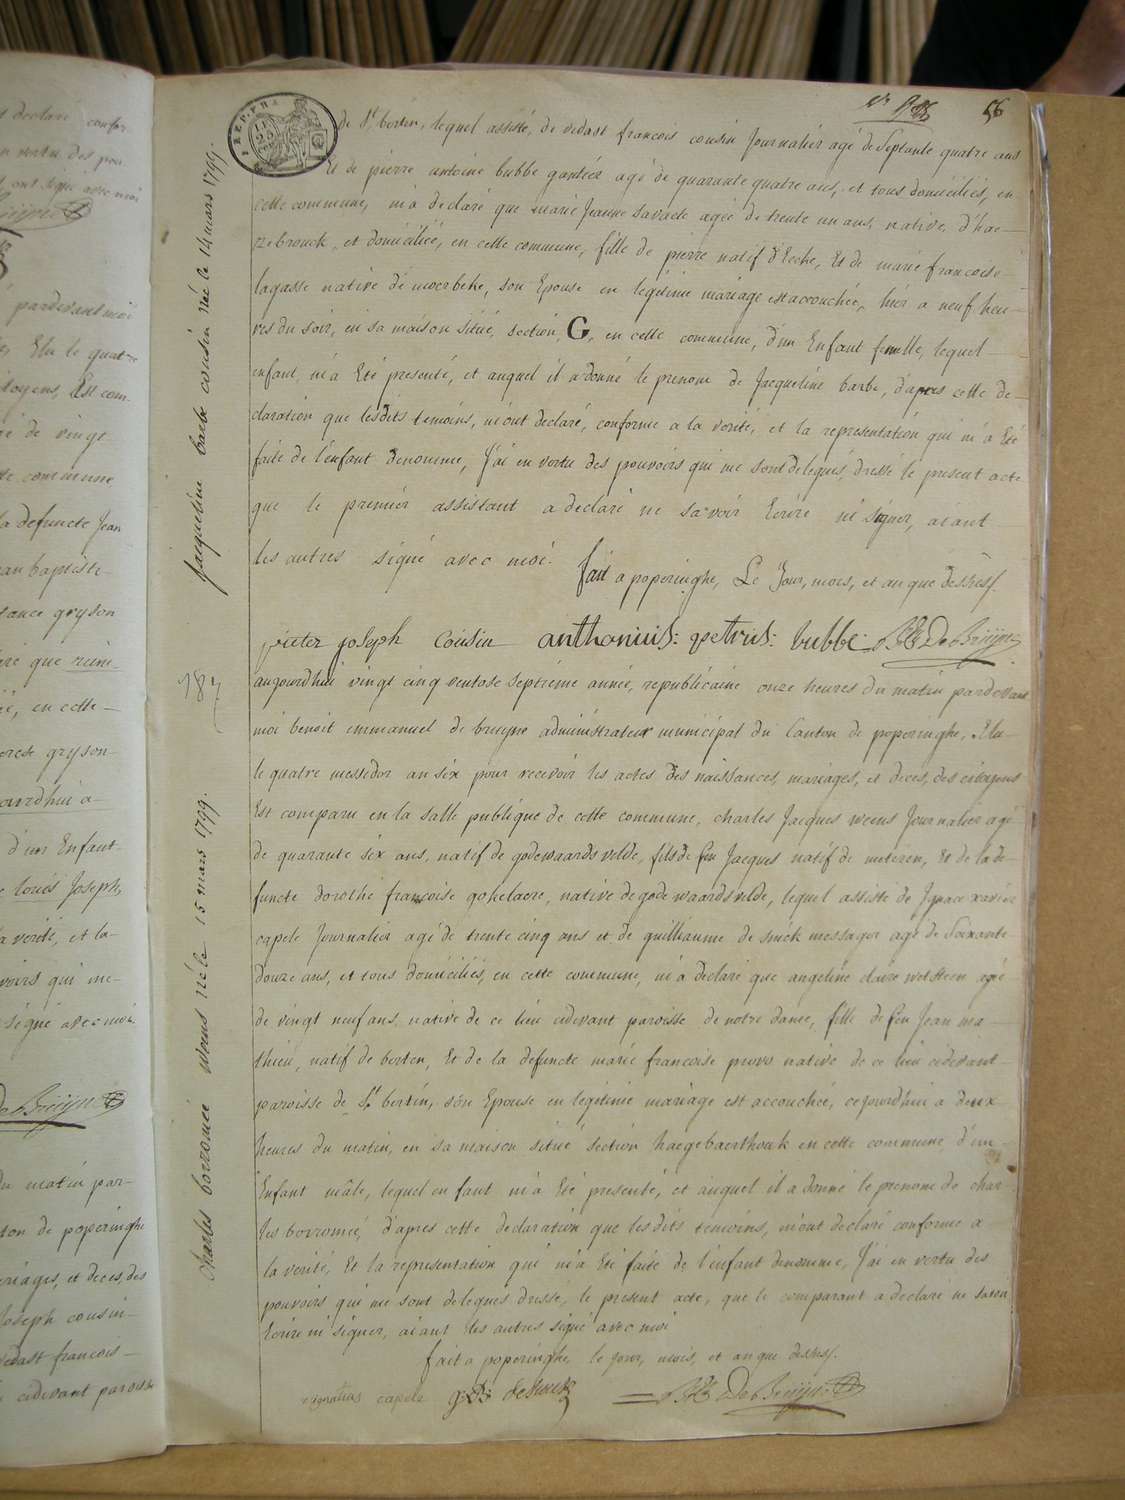 56
de St. berten, lequel assisté, de vedast francois cousin Journalier agé de Septante quatre ans
Et de pierre antoine bubbe gantier agé de quarante quatre ans, et tous domiciliés, en
cette commune, m'a declaré que marie Jeanne savaete agée de trente un ans, native, d'hae-
zebrouck, et domiciliée, en cette commune, fille de pierre natif d'Ecke, Et de marie francoise
lagasse native de moerbeke, son Epouse en légitime mariage est accouchée, hier a neuf heu-
res du soir, en sa maison situé, section, G, en cette commune, d'un Enfant femelle, lequel
enfant, m'a Eté presenté, et auquel il a donné le prenom de Jacqueline barbe, d'apres cette de-
claration que lesdits temoins, m'ont declaré, conforme a la verité, et la representation qui m'a Eté
faite de l'enfant denommé, J'ai en vertu des pouvoirs qui me sont delegués, dressé le present acte
que le premier assistant a declaré ne savoir Ecrire ni signer, aiant
les autres signé avec moi.
fait a poperinghe, Le Jour, mois, et an que dessus.
pieter joseph cousin anthonius: petrus: bubbe B E De Bruyne
Jacqueline barbe cousin née le 14 mars 1799.
187
aujourdhui vingt cinq ventose septieme année, republicaine onze heures du matin pardevant
moi benoit emmanuel de bruyne administrateur municipal du Canton de poperinghe, Elu
le quatre messidor an six pour recevoir les actes des naissances, mariages, et deces, des citoyens
Est comparu en la salle publique de cette commune, charles Jacques weens Journalier agé
de quarante six ans, natif de godewaardsvelde, fils de feu Jacques natif de meteren, Et de la de-
functe dorothe françoise gohelaere, native de godewaardsvelde, lequel assisté de Ignace xavier
capele Journalier agé de trente cinq ans et de guilliaume de smick messager agé de Soixante
douze ans, et tous domiciliés, en cette commune, m'a declaré que angeline claire welsteen agée
de vingt neuf ans, native de ce lieu cidevant paroisse de notre dame, fille de feu Jean ma
thieu, natif de berten, Et de la defuncte marie francoise provo native de ce lieu cidevant
paroisse de St. bertin, son Epouse en legitime mariage est accouchée, cejourdhui a deux
heures du matin, en sa maison situé section haegebaerthouk en cette commune d'un
Enfant mâle, lequel enfant m'a Eté presenté, et auquel il a donné le prenom de char-
les borromée, d'apres cette declaration que lesdits temoins, m'ont declaré conforme a
la verité, Et la representation qui m'a Eté faite de l'enfant denommé, J'ai en vertu des
pouvoirs qui me sont delegués dressé, le present acte, que le comparant a declaré ne savoir
Ecrire ni signer, aiant les autres signé avec moi
fait a poperinghe le jour, mois, et an que dessus.
ignatius capele B E De Bruyne
Charles borromée weens né le 15 mars 1799.